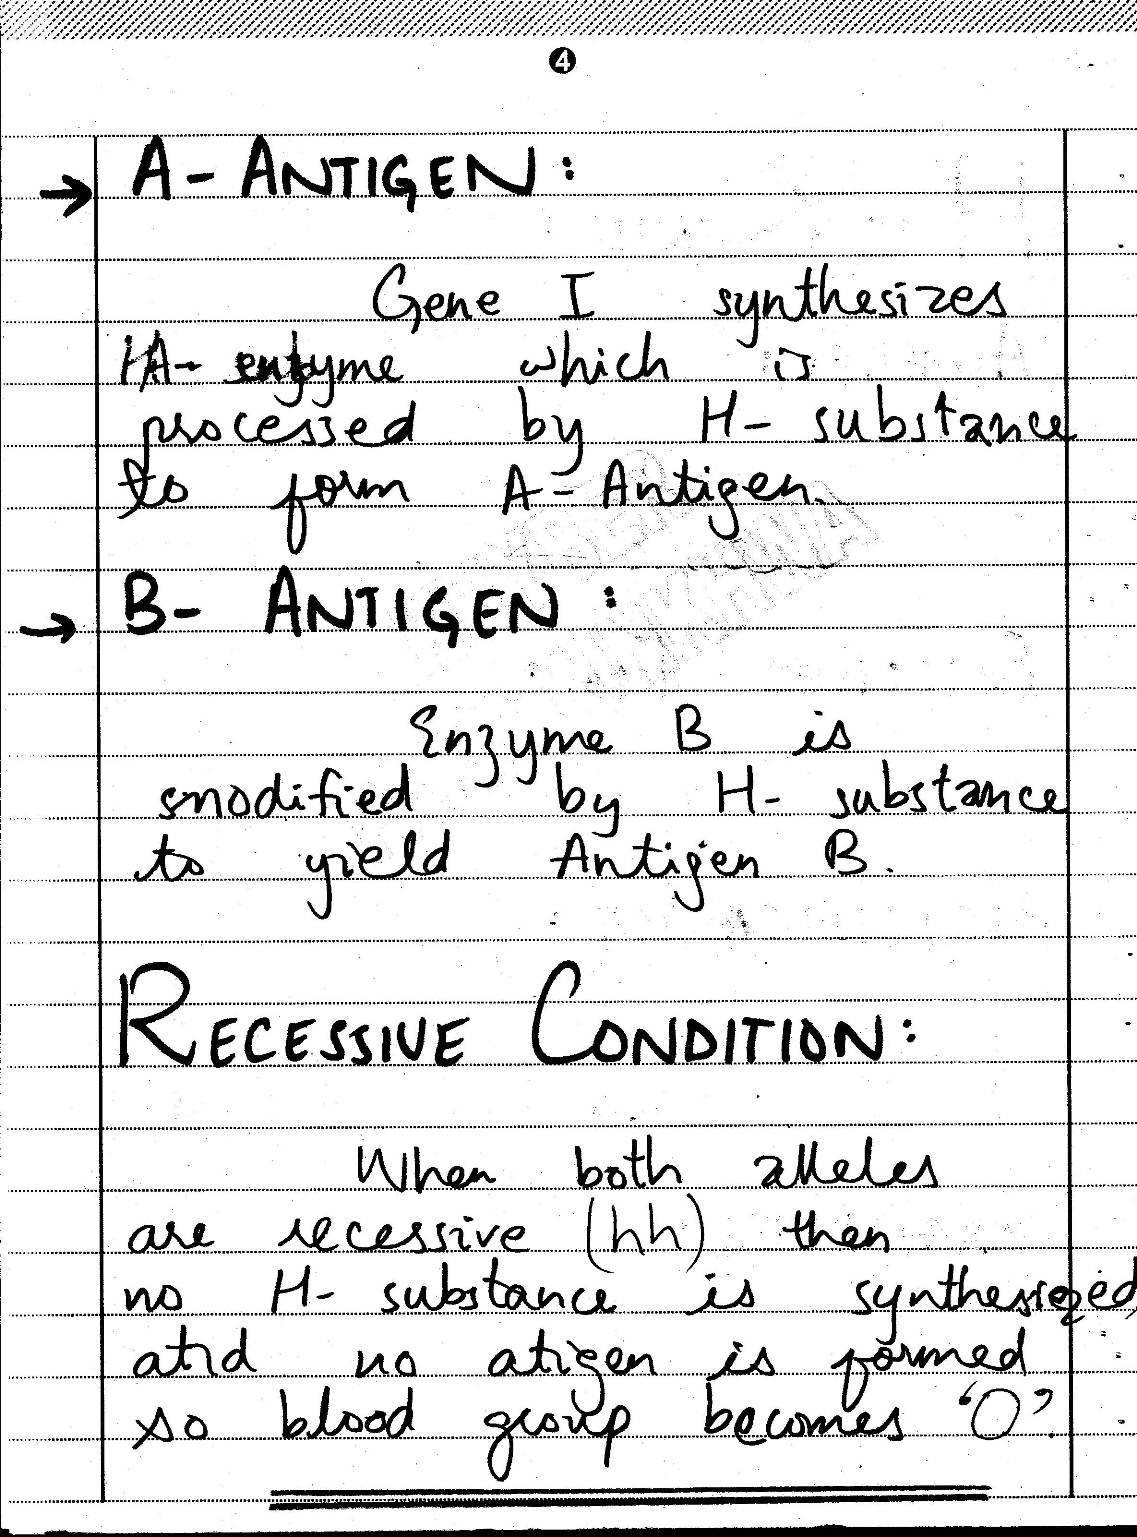 4
→ A-ANTIGEN:
Gene I synthesizes
A- enzyme which is
processed by H- substance
to form A-Antigen.
→ B- ANTIGEN:
Enzyme B is
modified by H- substance
to yield Antigen B.
RECESSIVE CONDITION:
When both alleles
are recessive (hh) then
no H- substance is synthesized
and no atigen is formed
so blood group becomes 'O'.